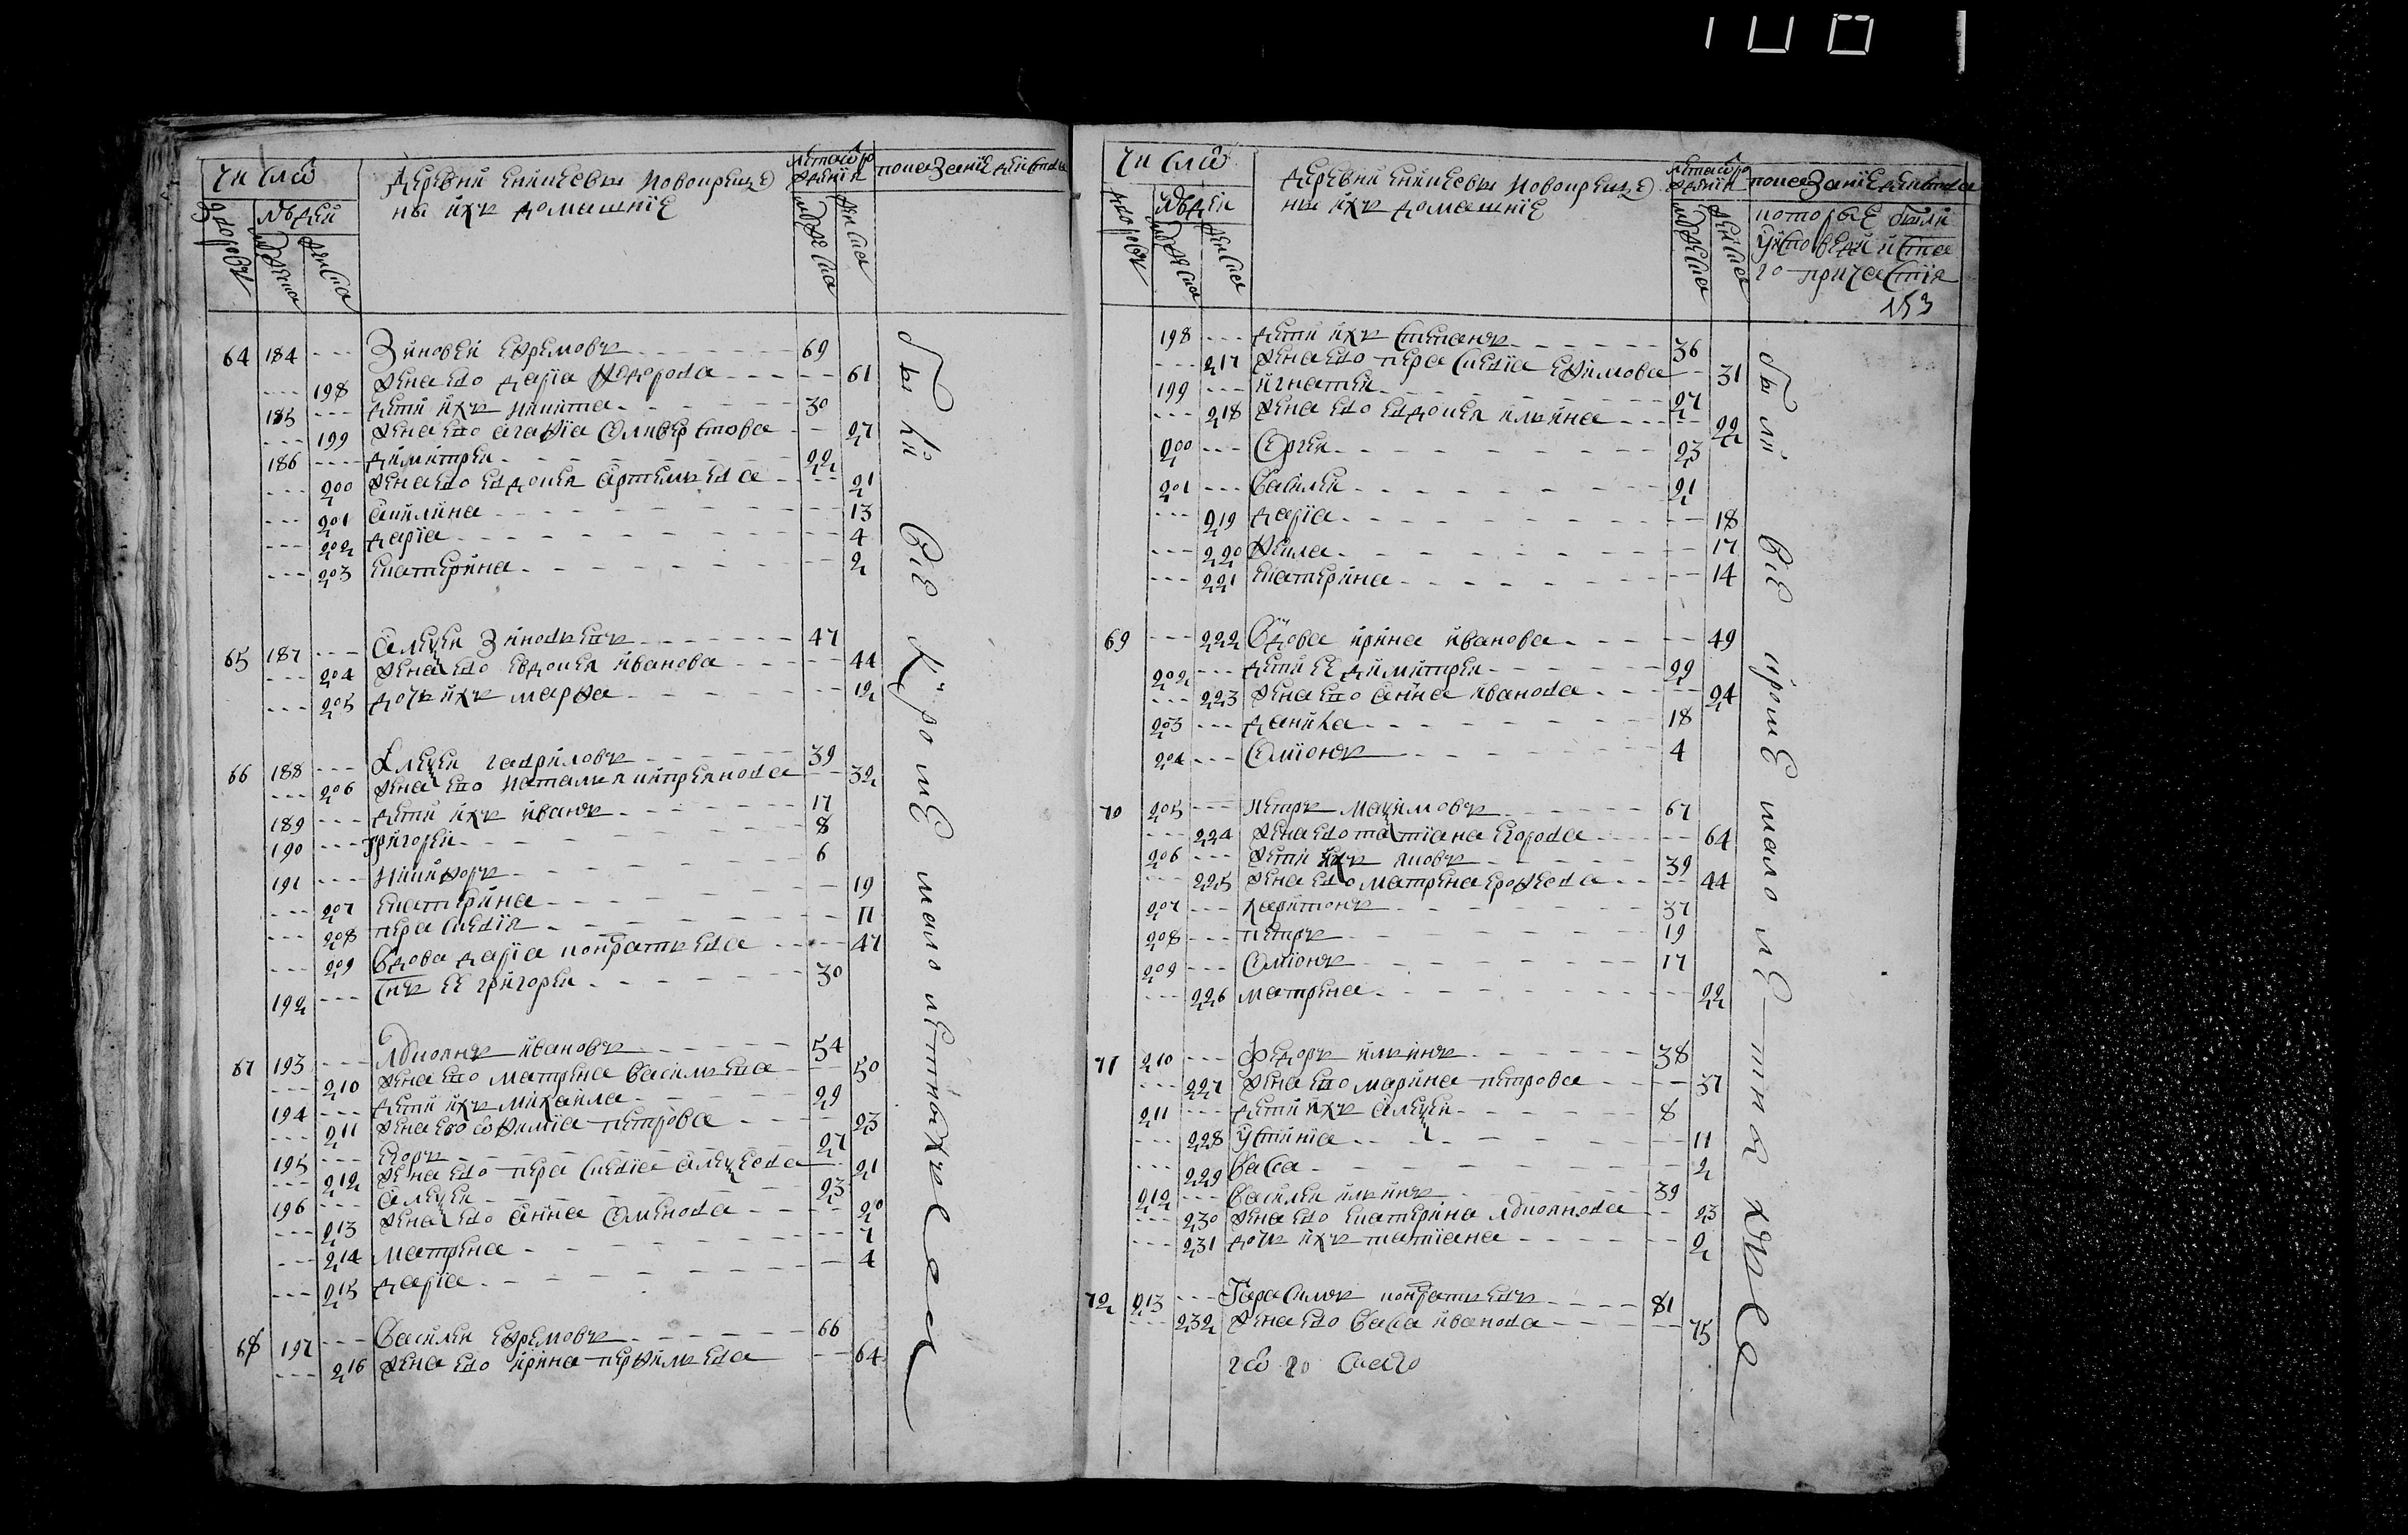 число
деревни енишевы новокреще
ны ихъ домашние
лета от ро
ждения
показание действа
дворовъ
людей
мужеска
женска
мужеска
женска
64 184 --- Зиновей ефремовъ 69
--- 198 жена ево дарiа федорова 61
185 --- дети ихъ никита 30
--- 199 жена ево агафiа селиверстова 27
186 --- димитрей 22
--- 200 жена ево евдокея артемьева 21
--- 201 акилина 13
--- 202 дарiа 4
--- 203 екатерина 2
65 187 --- алексей зиновьевъ 47
--- 204 жена ево евдокея иванова 44
--- 205 дочь ихъ марфа 12
66 188 --- алексей гавриловъ 39
--- 206 жена ево наталья киприянова 32
189 --- дети ихъ иванъ 17
190 --- григорей 8
191 --- никифоръ 6
--- 207 екатерина 19
--- 208 параскевiя 11
--- 209 вдова дарiа кондратьева 47
192 --- сынъ ее григорей 30
67 193 --- ивановъ 54
--- 210 жена ево матрена васильева 50
194 --- дети ихъ михаила 29
--- 211 жена ево софимiа петрова 23
195 --- егоръ 27
--- 212 жена ево параскевiа алексеева 21
196 --- алексей 23
--- 213 жена ево анна семенова 20
--- 214 матрена 7
--- 215 дарiа 4
68 197 --- василей ефремовъ 66
--- 216 жена ево ирина перфильева 64
были все кроме малолетныхъ
число
деревни енишевы новокреще
ны ихъ домашние
лета от ро
ждения
показание действа
дворовъ
людей
мужеска
женска
мужеска
женска
которые были
у исповеди и свята
го причастия
153
198 --- дети ихъ степанъ 36
--- 217 жена ево параскевiа ефимова 31
199 --- игнатей 27
--- 218 жена ево евдокея ильина 22
200 --- сергей 23
201 --- василей 21
--- 219 дарiа 18
--- 220 фекла 17
--- 221 екатерина 14
69 --- 222 вдова ирина иванова 49
202 --- дети ее димитрей 29
--- 223 жена ево анна иванова 24
203 --- данила 18
204 --- семионъ 4
70 205 --- петръ максимовъ 67
--- 224 жена ево татiана егорова 64
206 --- дети ихъ яковъ 39
--- 225 жена ево матрена ерофеева 44
207 --- харитонъ 37
208 --- петръ 19
209 --- семионъ 17
--- 226 матрена 22
71 210 --- федоръ ильинъ 38
--- 227 жена ево марина петрова 37
211 --- дети ихъ алексей 8
--- 228 устинiа 11
--- 229 васса 2
212 --- василей ильинъ 39
--- 230 жена ево екатерина 23
--- 231 дочь ихъ татiана 2
72 213 --- герасимъ кондратьевъ 81
--- 232 жена ево васса иванова 75
были все кроме малолетныхъ